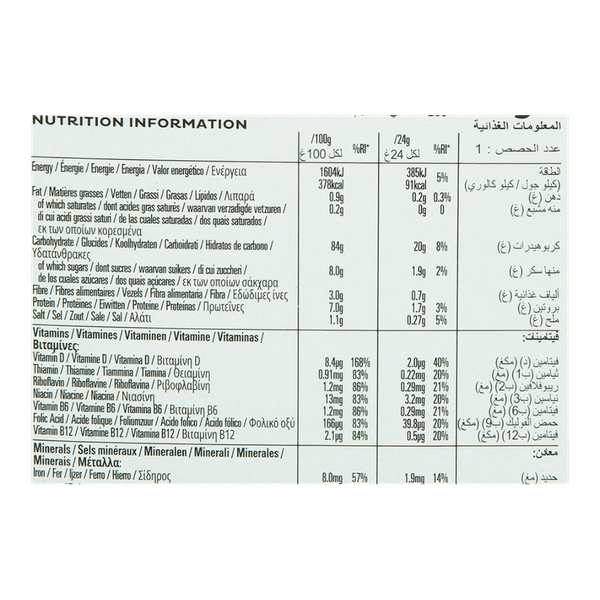 NUTRITION INFORMATION المعلومات الغذائية
/100g لكل 100غ %RI* /24g لكل 24غ %RI* عدد الحصص : 1
Energy / Énergie / Energie / Energia / Valor energético / Ενέργεια 1604kJ 385kJ 5% الطاقة
378kcal 91kcal (كيلو جول / كيلو كالوري)
Fat / Matières grasses / Vetten / Grassi / Grasas / Lípidos / Λιπαρά 0.9g 0.2g 0.3% دهن (غ)
of which saturates / dont acides gras saturés / waarvan verzadigde vetzuren / 0.2g 0g 0 منه مشبع (غ)
di cui acidi grassi saturi / de las cuales saturadas / dos quais saturados /
εκ των οποίων κορεσμένα
Carbohydrate / Glucides / Koolhydraten / Carboidrati / Hidratos de carbono / 84g 20g 8% كربوهيدرات (غ)
Υδατάνθρακες
of which sugars / dont sucres / waarvan suikers / di cui zuccheri / 8.0g 1.9g 2% منها سكر (غ)
de los cuales azúcares / dos quais açúcares / εκ των οποίων σάκχαρα
Fibre / Fibres alimentaires / Vezels / Fibra alimentaria / Fibra / Εδώδιμες ίνες 3.0g 0.7g ألياف غذائية (غ)
Protein / Protéines / Eiwitten / Proteine / Proteínas / Πρωτεΐνες 7.0g 1.7g 3% بروتين (غ)
Salt / Sel / Zout / Sale / Sal / Αλάτι 1.1g 0.27g 5% ملح (غ)
Vitamins / Vitamines / Vitaminen / Vitamine / Vitaminas / فيتامينات:
Βιταμίνες:
Vitamin D / Vitamine D / Vitamina D / Βιταμίνη D 8.4µg 168% 2.0µg 40% فيتامين (د) (مكغ)
Thiamin / Thiamine / Tiammina / Tiamina / Θειαμίνη 0.91mg 83% 0.22mg 20% ثيامين (ب1) (مغ)
Riboflavin / Riboflavine / Riboflavina / Ριβοφλαβίνη 1.2mg 86% 0.29mg 21% ريبوفلافين (ب2) (مغ)
Niacin / Niacine / Niacina / Νιασίνη 13mg 83% 3.2mg 20% نياسين (ب3) (مغ)
Vitamin B6 / Vitamine B6 / Vitamina B6 / Βιταμίνη B6 1.2mg 86% 0.29mg 21% فيتامين (ب6) (مغ)
Folic Acid / Acide folique / Foliumzuur / Acido folico / Ácido fólico / Φολικό οξύ 166µg 83% 39.8µg 20% حمض الفوليك (ب9) (مكغ)
Vitamin B12 / Vitamine B12 / Vitamina B12 / Βιταμίνη B12 2.1µg 84% 0.5µg 20% فيتامين (ب12) (مكغ)
Minerals / Sels minéraux / Mineralen / Minerali / Minerales / معادن:
Minerais / Μέταλλα:
Iron / Fer / Ijzer / Ferro / Hierro / Σίδηρος 8.0mg 57% 1.9mg 14% حديد (مغ)